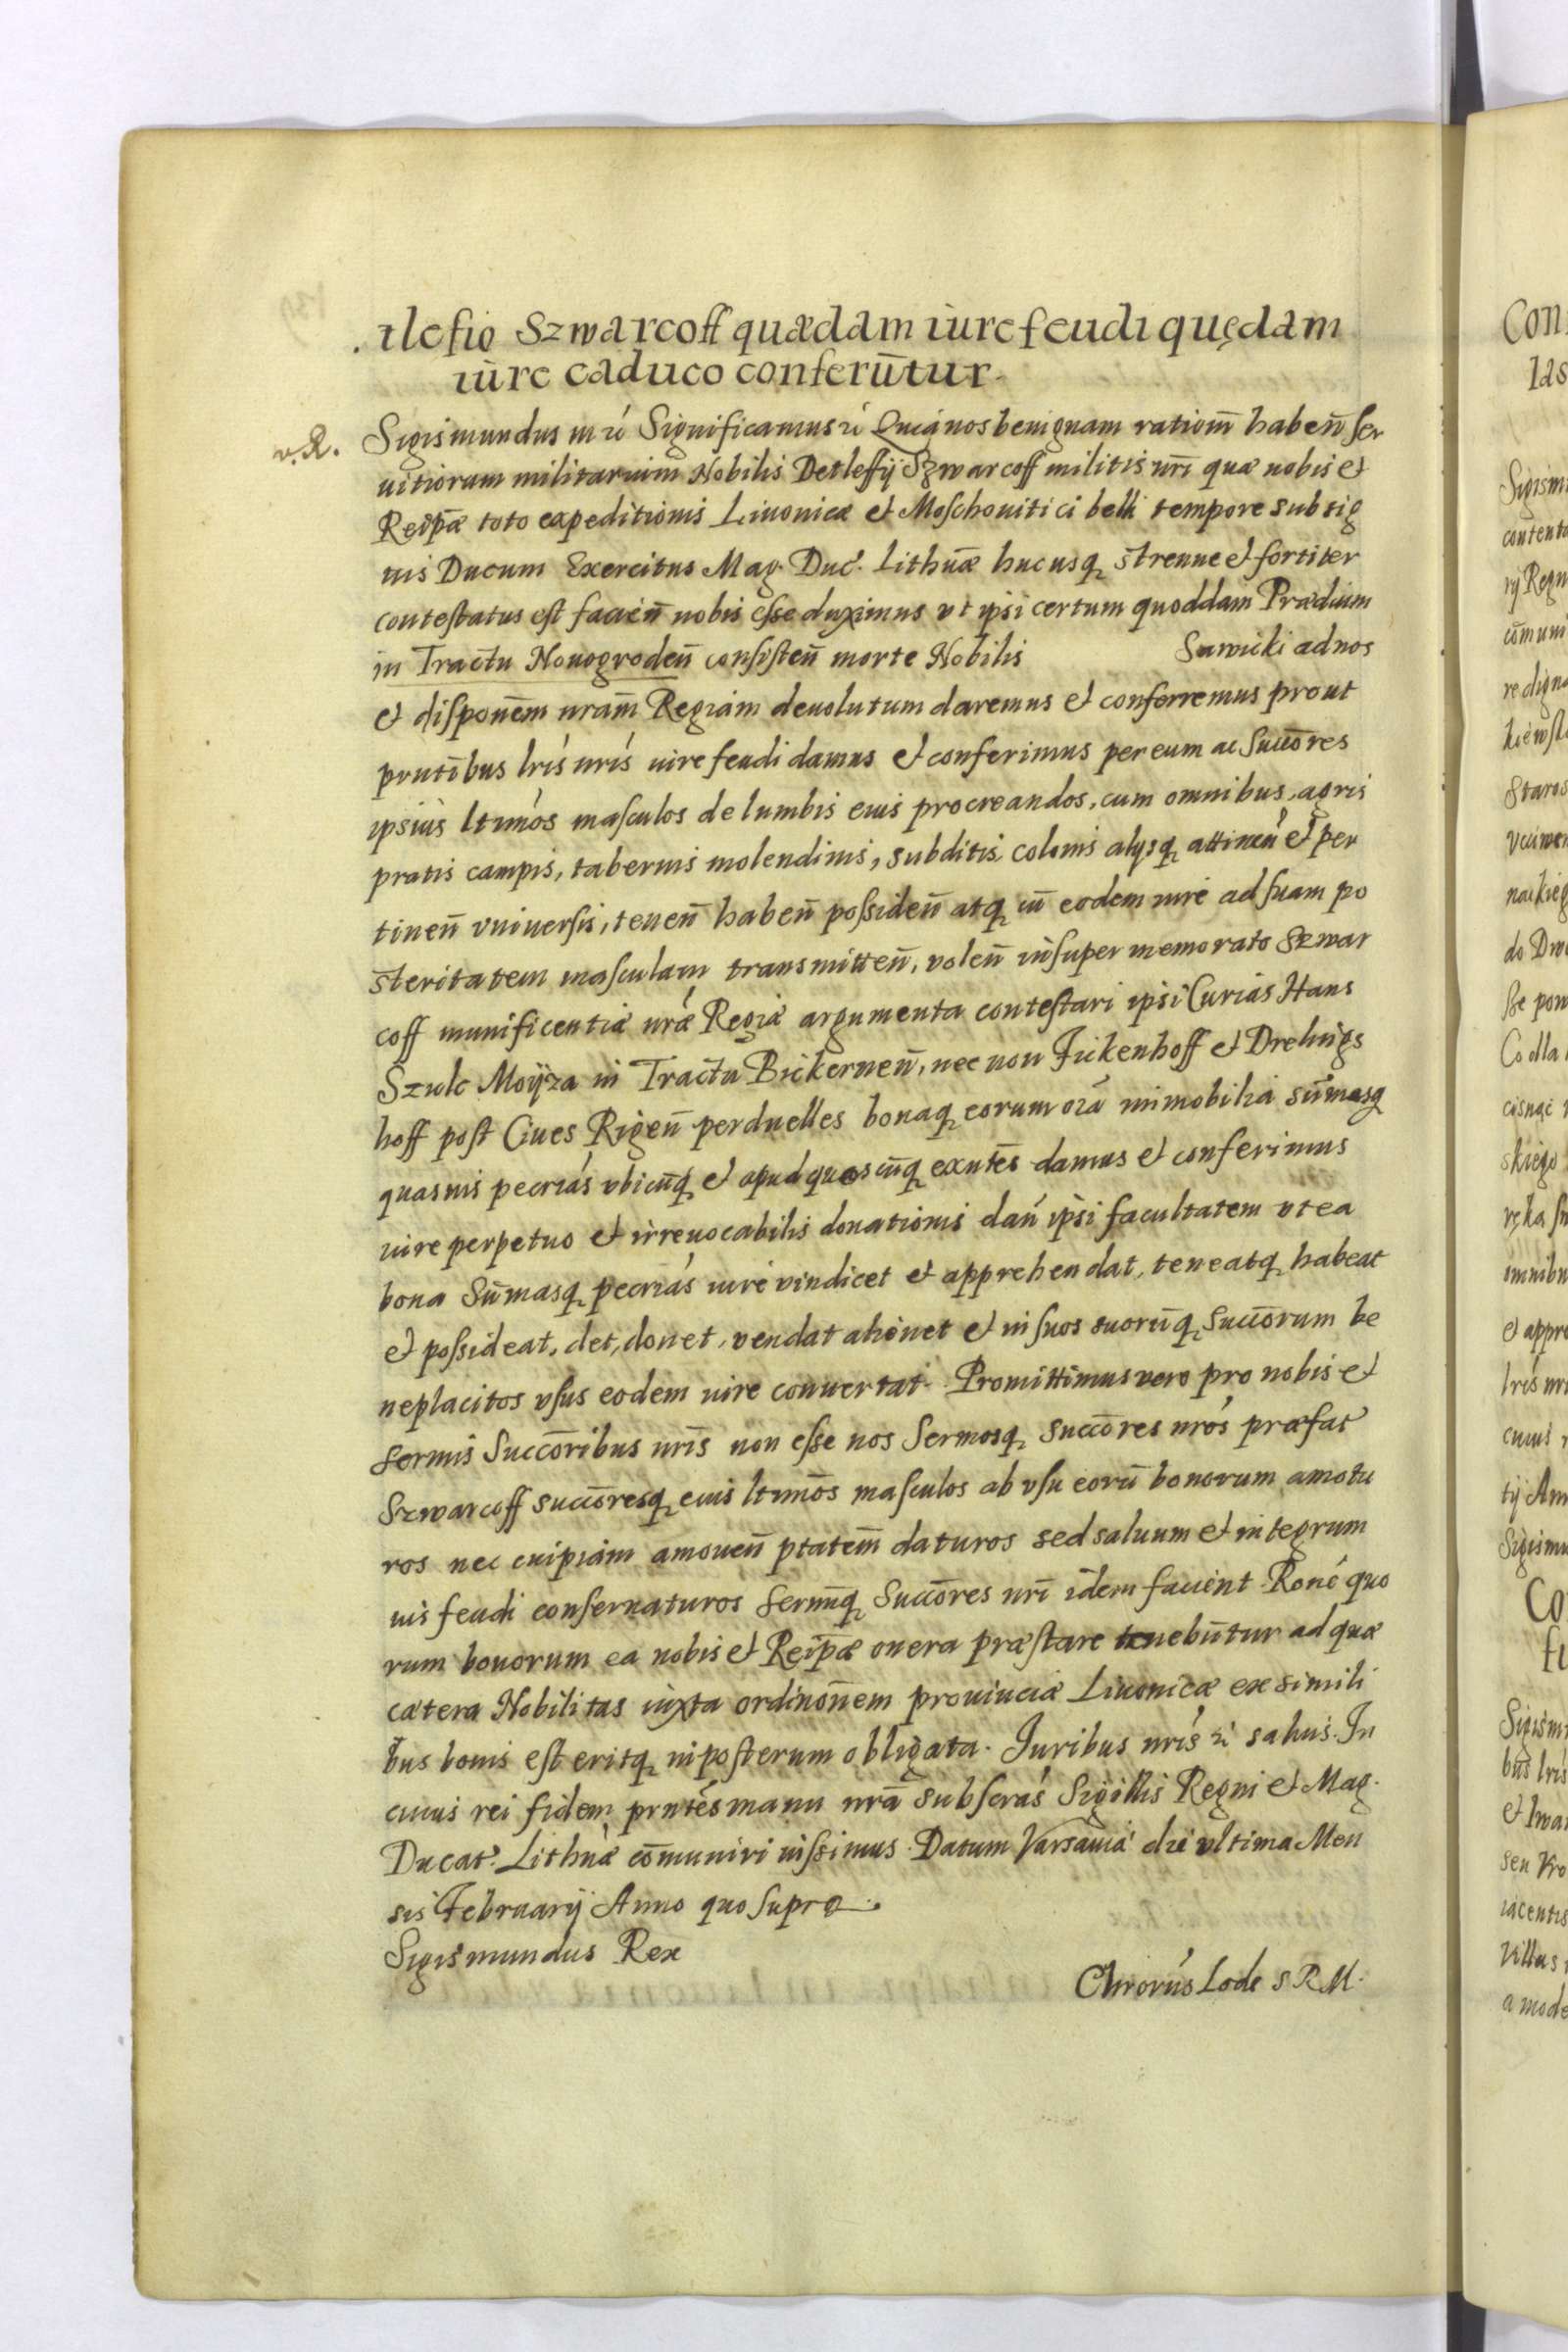 tlefio Szwarcoff quædam iure feudi quędam
iùre caduco conferūtur.
v. R.
Sigismundus Significamus Quia nos benignam rationm̄ haben̄ ser
uitiorum militarium Nobilis Detleffÿ Szwarcoff militis nrī quæ nobis et
Reip̄æ toto expeditionis Liuonicæ et Moschouitici belli tempore sub sig
nis Ducum Exercitus Mag. Duc. Lithuǣ hucusq strenue et fortiter
contestatus est facien̄ nobis esse duximus vt ipsi certum quoddam Prædium
in Tractu Nouogroden̄ consisten̄ morte Nobilis Sawicki ad nos
et disponēm nram̄ Regiam deuolutum daremus et conferremus prout
prntībus lrīs nrīs iure feudi damus et conferimus per eum ac Succōres
ipsius ltimōs masculos de lumbis eius procreandos, cum omnibus agris
pratis campis, tabernis molendinis, subditis colonis alÿsq attinen̄ et per
tinen̄ vniuersis, tenen̄ haben̄ possiden̄ atq in̄ eodem iure ad suam po
steritatem masculam transmitten̄, volen̄ insuper memorato Szwar
coff munificentiæ nræ Regiæ argumenta contestari ipsi Curias Hans
Szulc Moÿza in Tractu Bickernen̄, nec non Fickenhoff et Drelings
hoff post Ciues Rigen̄ perduelles bonaq eorum oīa immobilia sūmasq
quasuis pecrias vbicūq et apud quoscūq exntēs damus et conferimus
iure perpetuo et irreuocabilis donationis dan̄ ipsi facultatem vt ea
bona Sūmasq pecrias iure vindicet et apprehendat, teneatq habeat
et possideat, det, donet, vendat alienet et in suos suorūq succōrum be
neplacitos vsus eodem iure conuertat. Promittimus vero pro nobis et
sermis Succōribus nrīs non esse nos Sermosq succōres nrōs præfat
Szwarcoff succōresq eius ltimōs masculos ab vsu eorū bonorum amotu
ros nec cuipiam amouen̄ ptatem̄ daturos sed saluum et integrum
ius feudi conseruaturos sermiq Succōres nrī idem facient Ronē quo
rum bonorum ea nobis et Reip̄æ onera præstare tenebūtur ad quæ
cætera Nobilitas iuxta ordinōnem prouinciæ Liuonicæ ex simili
bus bonis est eritq in posterum obligata. Juribus nrīs saluis. In
cuius rei fidem prntēs manu nrā subscras Sigillis Regni et Mag.
Ducat. Lithuæ cōmuniri iussimus. Datum Varsauiæ die vltima Men
sis Februarÿ Anno quo supra.
Sigismundus Rex
Lode S R M.